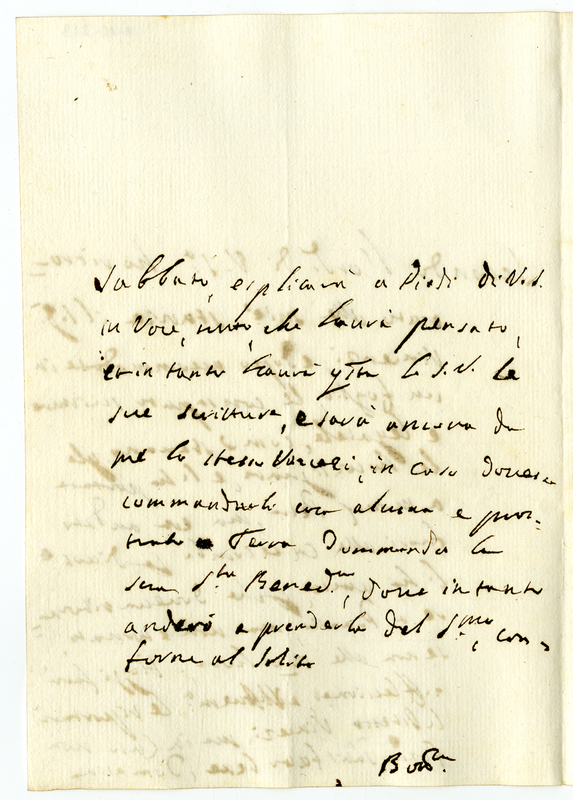 Sabbato, esplicarà a Piedi di V.S.
in Voce, tutto, che haurà pensato,
et in tanto haurà la S.V. le
sue scritture, e sarà ancora da
me lo stesso in caso douesse
commandarli cosa alcuna e pros-
trato a Terra Dommanda la
sua S.ta Bened.ne, doue in tanto
anderò a prenderla del S.mo, con-
forme al solito